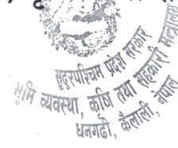 सुदूरपश्चिम प्रदेश सरकार
भूमि व्यवस्था, कृषि तथा सहकारी मन्त्रालय
धनगढी, कैलाली, नेपाल